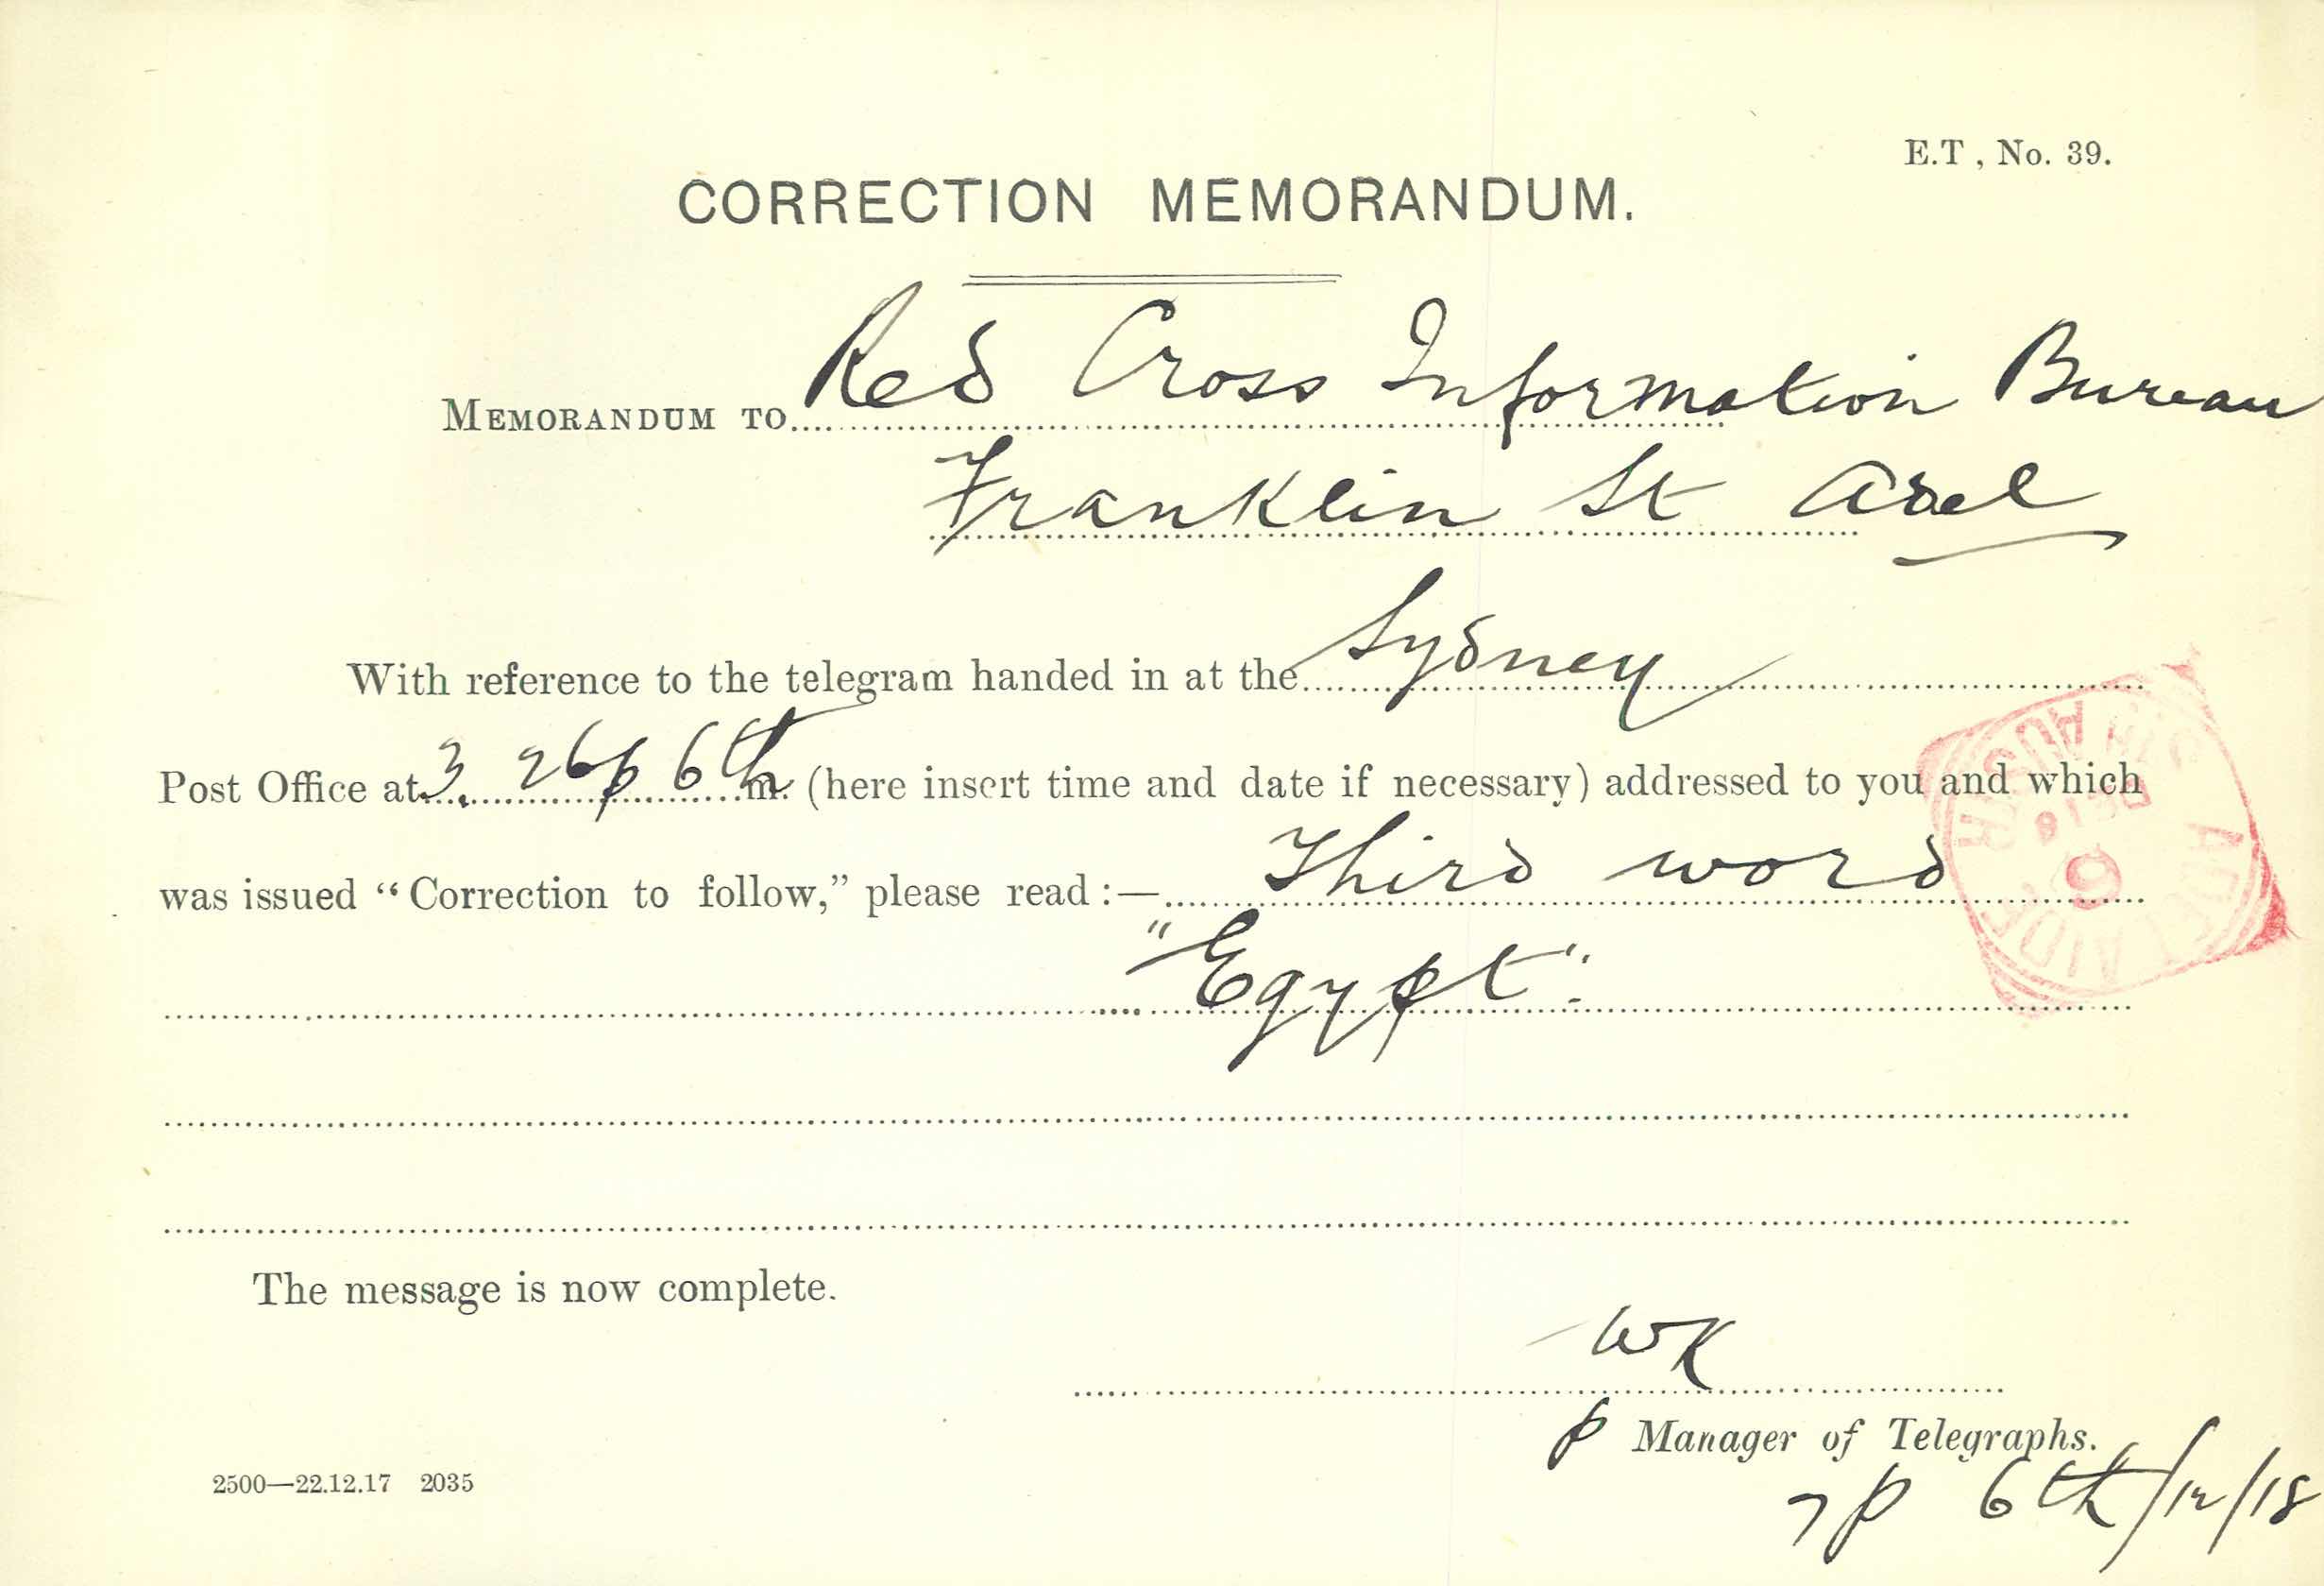 E.T , No. 39.
CORRECTION MEMORANDUM.
MEMORANDUM TO Red Cross Information Bureau
Franklin St Adel
With reference to the telegram handed in at the Sydney
Post Office at 3. 26p 6th m. (here insert time and date if necessary) addressed to you and which
was issued “Correction to follow,” please read :— Third word
"Egypt".
The message is now complete.
WK
p Manager of Telegraphs.
7p 6th/12/18
2500—22.12.17 2035
ADELAIDE
6
DE 18
STH AUSTRALIA